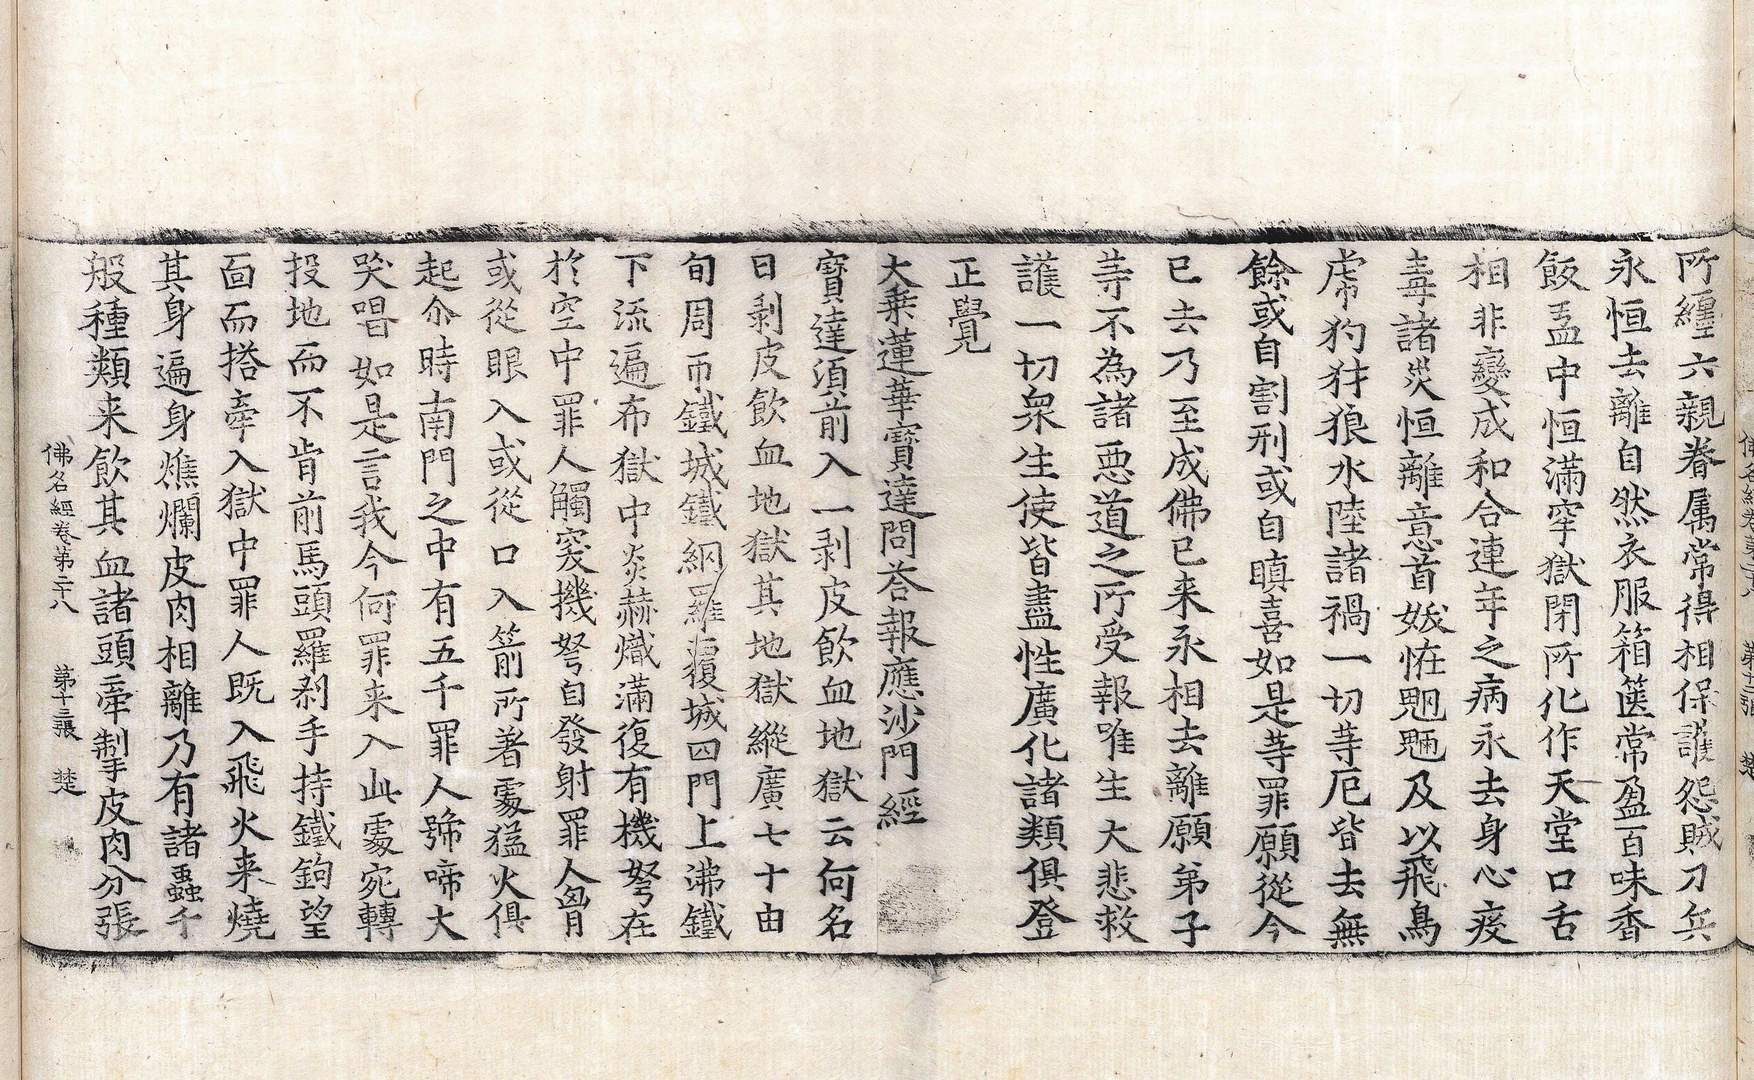 所纏六親眷属常得相保護怨賊刀兵
永恒去離自然衣服箱篋常盈百味香
飯盂中恒滿牢獄閉所化作天堂口舌
相非變成和合連年之病永去身心疫
毒諸災恒離意首妖恠魍魎及以飛鳥
虎豹犲狼水陸諸禍一切䓁厄皆去無
餘或自割刑或自瞋喜如是䓁罪願從今
已去乃至成佛已来永相去離願弟子
䓁不為諸惡道之所受報唯生大悲救
護一切衆生使皆盡性廣化諸類俱登
正覺
大乗蓮華寳達問荅報應沙門經
寳達湏前入一剥皮飲血地獄云何名
曰剥皮飲血地獄其地獄縱廣七十由
旬周帀鐵城鐵網羅覆城四門上沸鐵
下流遍布獄中炎赫熾滿復有機弩在
於空中罪人觸突機弩自發射罪人胷
或從眼入或從口入箭所著䖏猛火俱
起尒時南門之中有五千罪人號啼大
哭唱如是言我今何罪来入此䖏宛轉
投地而不肯前馬頭羅剎手持鐵鉤望
靣而搭牽入獄中罪人既入飛火来燒
其身遍身燋爛皮肉相離乃有諸蟲千
般種類来飲其血諸頭牽掣皮肉分張
佛名經卷第二十八 第十三張 楚